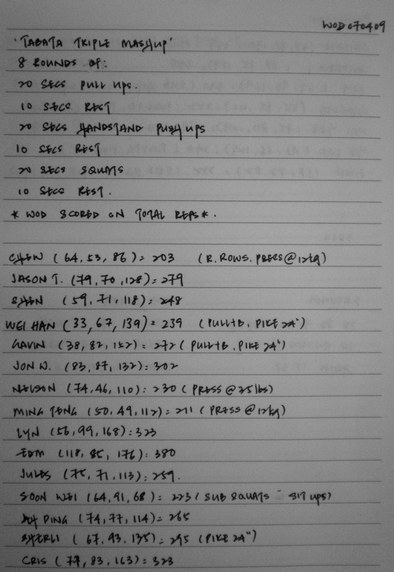 WOD 070409
'TABATA TRIPLE MASHUP'
8 ROUNDS OF:
20 SECS PULL UPS.
10 SECS REST
20 SECS HANDSTAND PUSH UPS
10 SECS REST
20 SECS SQUATS
10 SECS REST.
* WOD SCORED ON TOTAL REPS *.
(64, 53, 86) = 203 (R. ROWS. PRESS @ 12kg)
JASON T. (79, 70, 128) = 279
(59, 71, 118) : 248
WEI HAN (33, 67, 139) = 239 (PULL+B. PIKE 24")
GAVIN (38, 82, 152) = 272 (PULL+B. PIKE 24")
JON W. (83, 87, 132) : 302
NELSON (74, 46, 110) : 230 (PRESS @ 25lbs)
MING TONG (50, 49, 112) = 211 (PRESS @ 12kg)
LYN (56, 99, 168) : 323
EDM (118, 86, 176) : 380
JULES (75, 71, 113) : 259.
SOON WEI (64, 91, 68) = 223 (SUB SQUATS - SIT UPS)
PING (74, 77, 114) = 265
(67, 93, 135) = 295 (PIKE 24")
CRIS (77, 83, 163) = 323